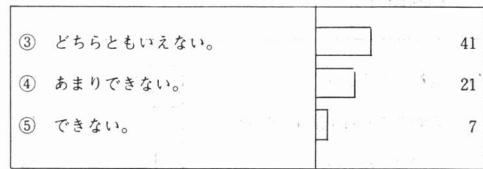 ③ どちらともいえない。 41
④ あまりできない。 21
⑤ できない。 7